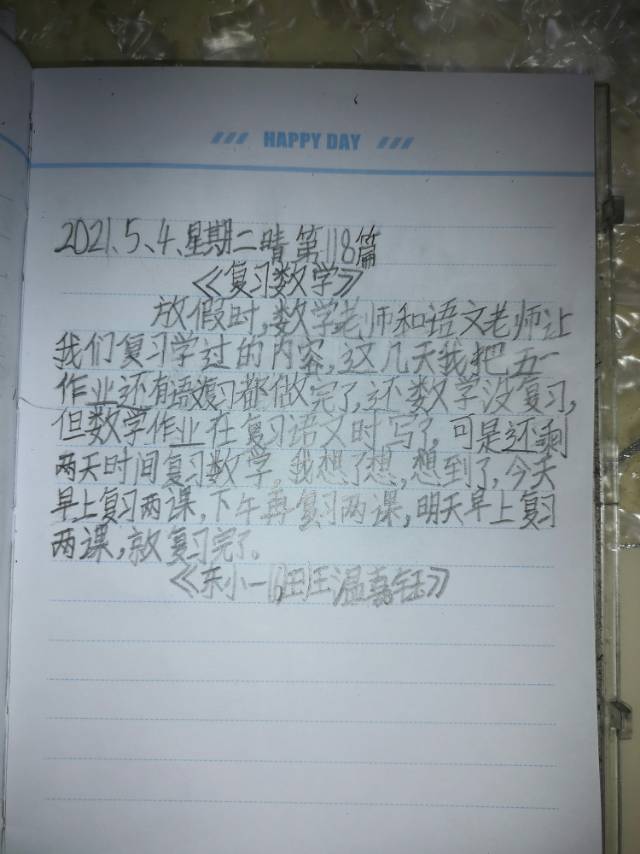 HAPPY DAY
2021、5、4、星期二晴 第118篇
《复习数学》
放假时,数学老师和语文老师让
我们复习学过的内容,这几天我把五一
作业还有语文复习都做完了,还数学没复习,
但数学作业在复习语文时写了,可是还剩
两天时间复习数学。我想了想,想到了,今天
早上复习两课,下午再复习两课,明天早上复习
两课,就复习完了。
《东小一16班温嘉钰》